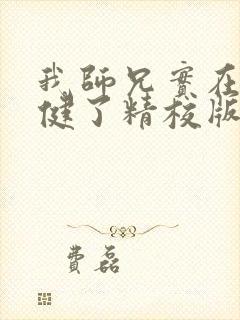 我師兄實在
健了精校版
費磊